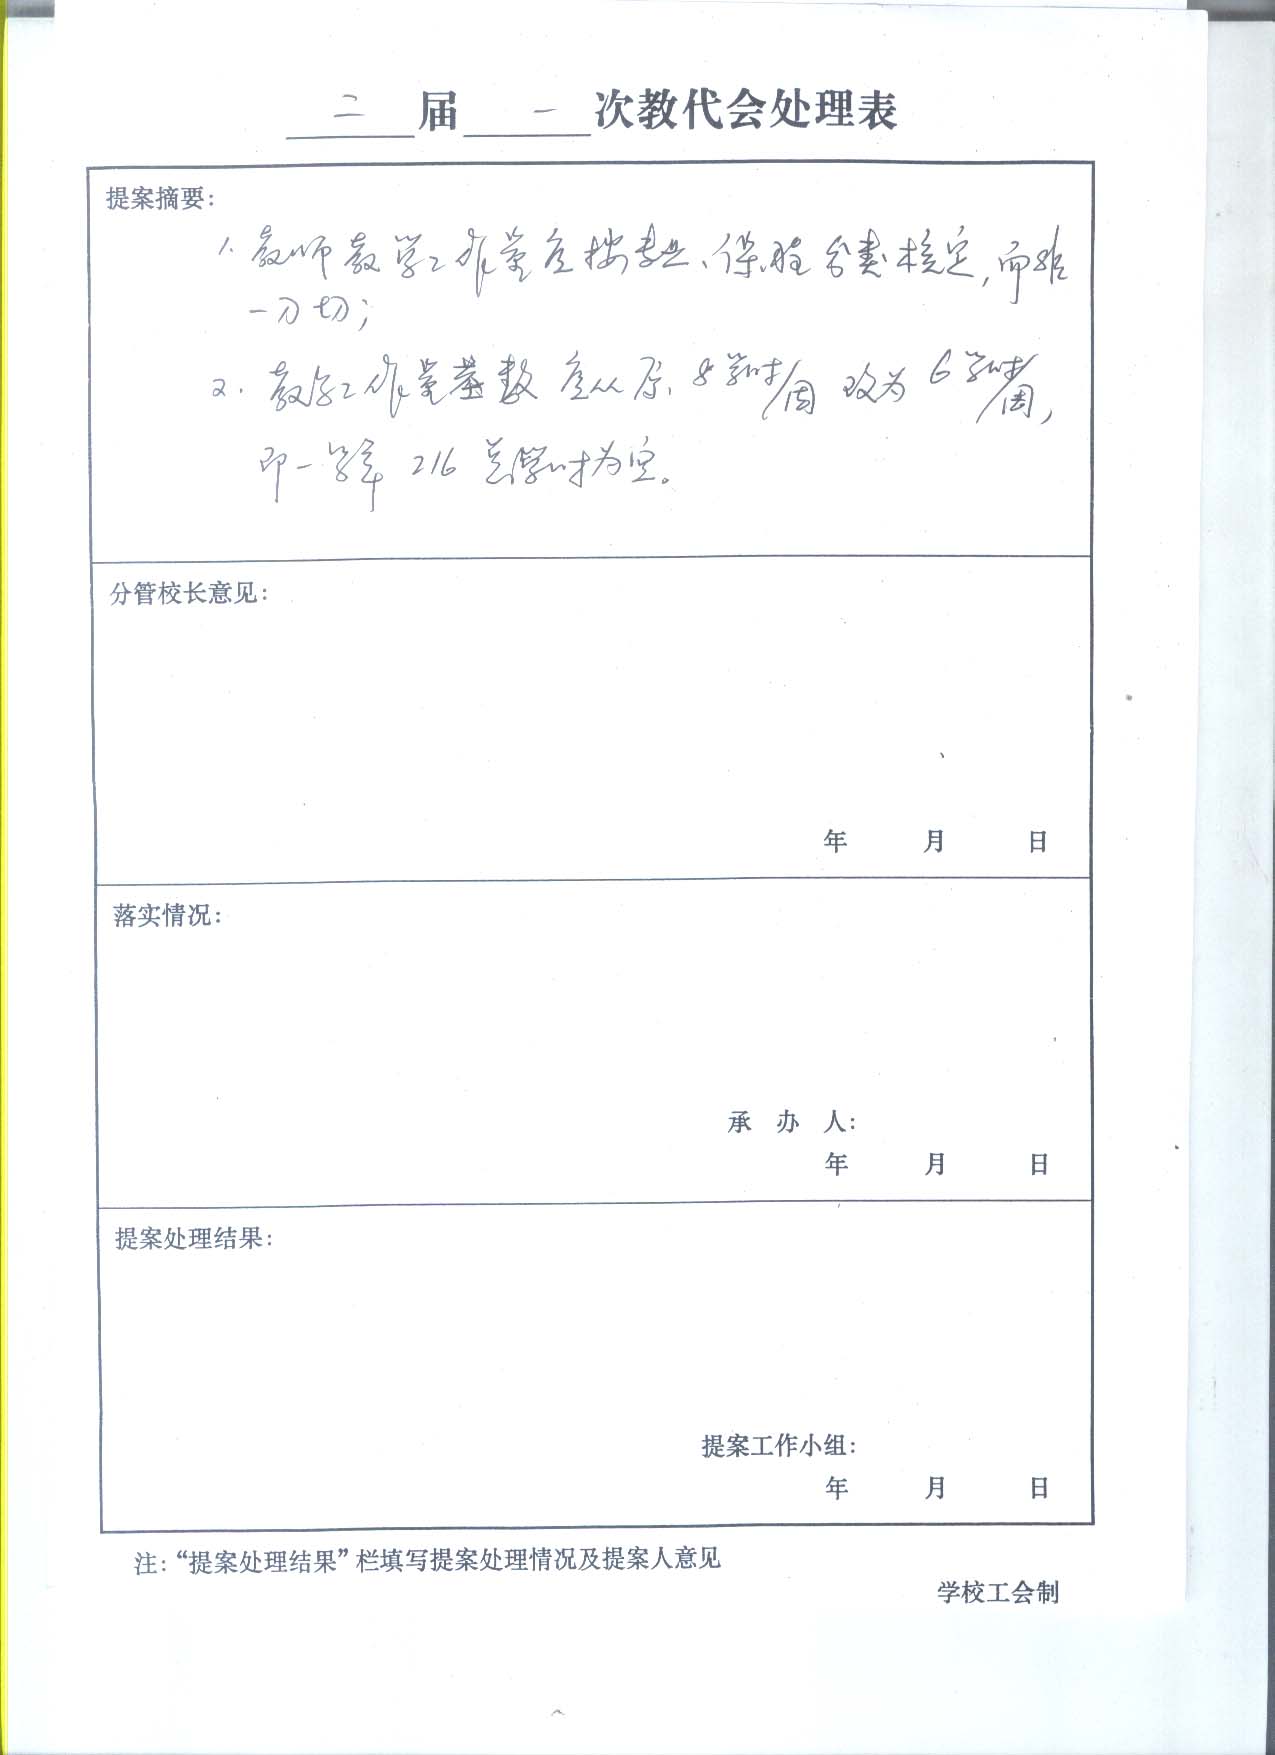 二 届 一 次教代会处理表
提案摘要:
1. 教师教学工作量应按专业、课程分类核定,而非
一刀切;
2. 教学工作量基数应从原 8学时/周 改为 6学时/周,
即一学年 216 总学时为宜。
分管校长意见:
年 月 日
落实情况:
承 办 人:
年 月 日
提案处理结果:
提案工作小组:
年 月 日
注:“提案处理结果”栏填写提案处理情况及提案人意见
学校工会制